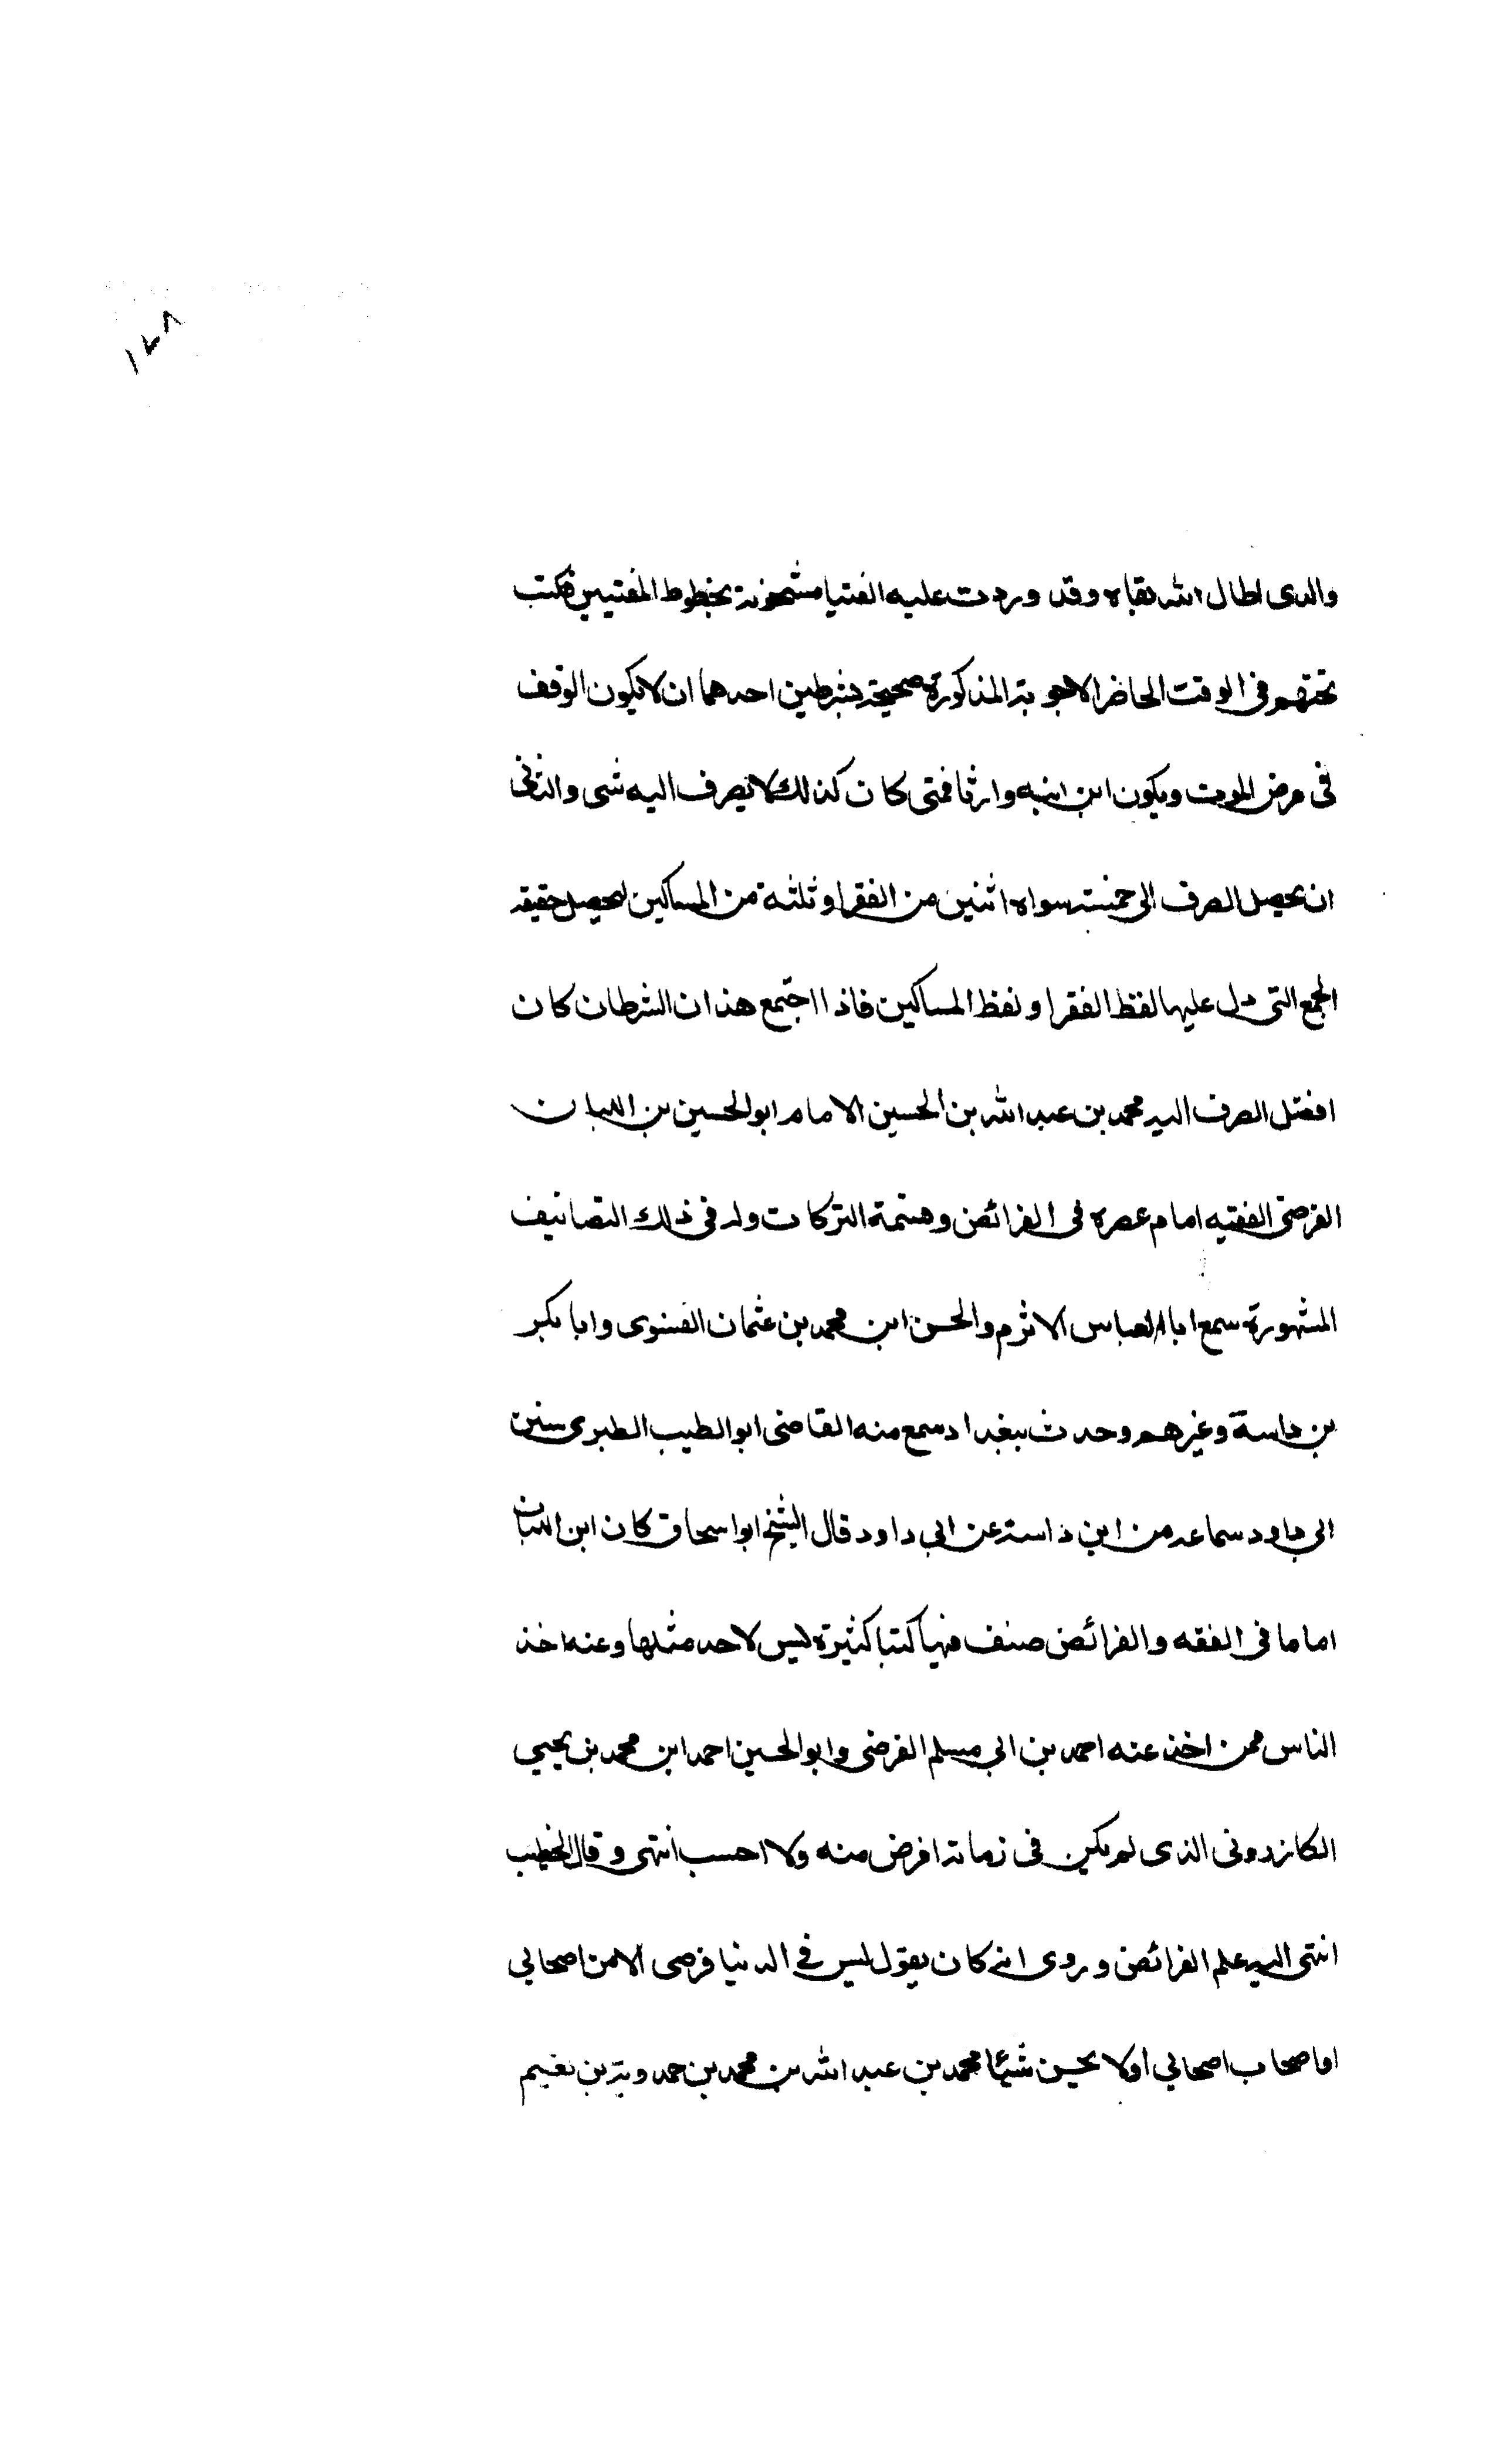 ١٢٨
والدى اطال الله بقاه وقد وردت عليه الفتيا مشحونة بخطوط المفتيين فكتب
تحتهم فى الوقت الحاضر الاجوبة المذكورة صحيحة بشرطين احدهما ان لا يكون الوقف
فى مرض الموت ويكون ابن ابنه وارثا فمتى كان كذلك لا يصرف اليه شى والثانى
ان يحصل الصرف الى خمسة سواه اثنين من الفقرا وثلثة من المساكين ليحصل حقيقة
الجمع التى دل عليها لفظ الفقرا ولفظ المساكين فاذا اجتمع هذان الشرطان كان
افضل الصرف اليه محمد بن عبد الله بن الحسين الامام ابو الحسين بن اللبان
الفرضى الفقيه امام عصره فى الفرائض وقسمة التركات وله فى ذلك التصانيف
المشهورة سمع ابا العباس الاثرم والحسن ابن محمد بن عثمان الفسوى وابا بكر
بن داسة وغيرهم وحدث ببغداد سمع منه القاضى ابو الطيب الطبرى سنن
ابى داود سماعه من ابن داسة عن ابى داود قال الشيخ ابو اسحاق كان ابن اللبان
اماما فى الفقه والفرائض صنف فيها كتبا كثيرة ليس لاحد مثلها وعنه اخذ
الناس ممن اخذ عنه احمد بن ابى مسلم الفرضى وابو الحسين احمد ابن محمد بن يحيى
الكازرونى الذى لم يكن فى زمانه افرض منه ولا احسب انتهى وقال الخطيب
انتهى اليه علم الفرائض وروى انه كان يقول ليس فى الدنيا فرضى الا من اصحابى
او اصحاب اصحابى اولا يحسن شيئا محمد بن عبد الله بن محمد بن حمدويه بن نعيم